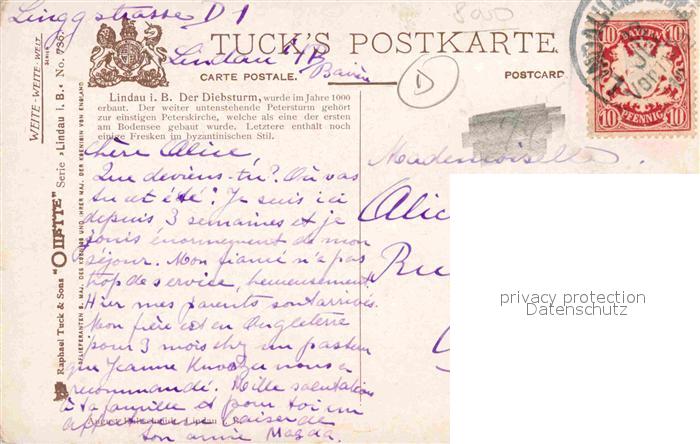 Linggstrasse D 1
Lindau i/B
Bavière
8000
D
TUCK'S POSTKARTE.
CARTE POSTALE.
POSTCARD
BAYERN
10 10
PFENNIG
10 10
WEITE-WEITE-WELT
SERIE
Raphael Tuck & Sons "OILETTE" Serie »Lindau i. B.« No. 736.
HOFLIEFERANTEN S. MAJ. DES KOENIGS UND IHRER MAJ. DER KOENIGIN VON ENGLAND
Lindau i. B. Der Diebsturm, wurde im Jahre 1000
erbaut. Der weiter untenstehende Petersturm gehört
zur einstigen Peterskirche, welche als eine der ersten
am Bodensee gebaut wurde. Letztere enthält noch
einige Fresken im byzantinischen Stil.
Chère Alice,
Que deviens-tu? Où vas
tu cet été? Je suis ici
depuis 3 semaines et je
jouis énormement de mon
séjour. Mon fiancé n'a pas
trop de service, heureusement
Hier mes parents sont arrivés.
Mon frère est en Angleterre
pour 3 mois chez un pasteur
que Jeanne nous a
recommandé. Mille salutations
à ta famille et pour toi un
affectueux baiser de
ton amie Magda.
Mademoiselle
Alic
Ru
privacy protection
Datenschutz